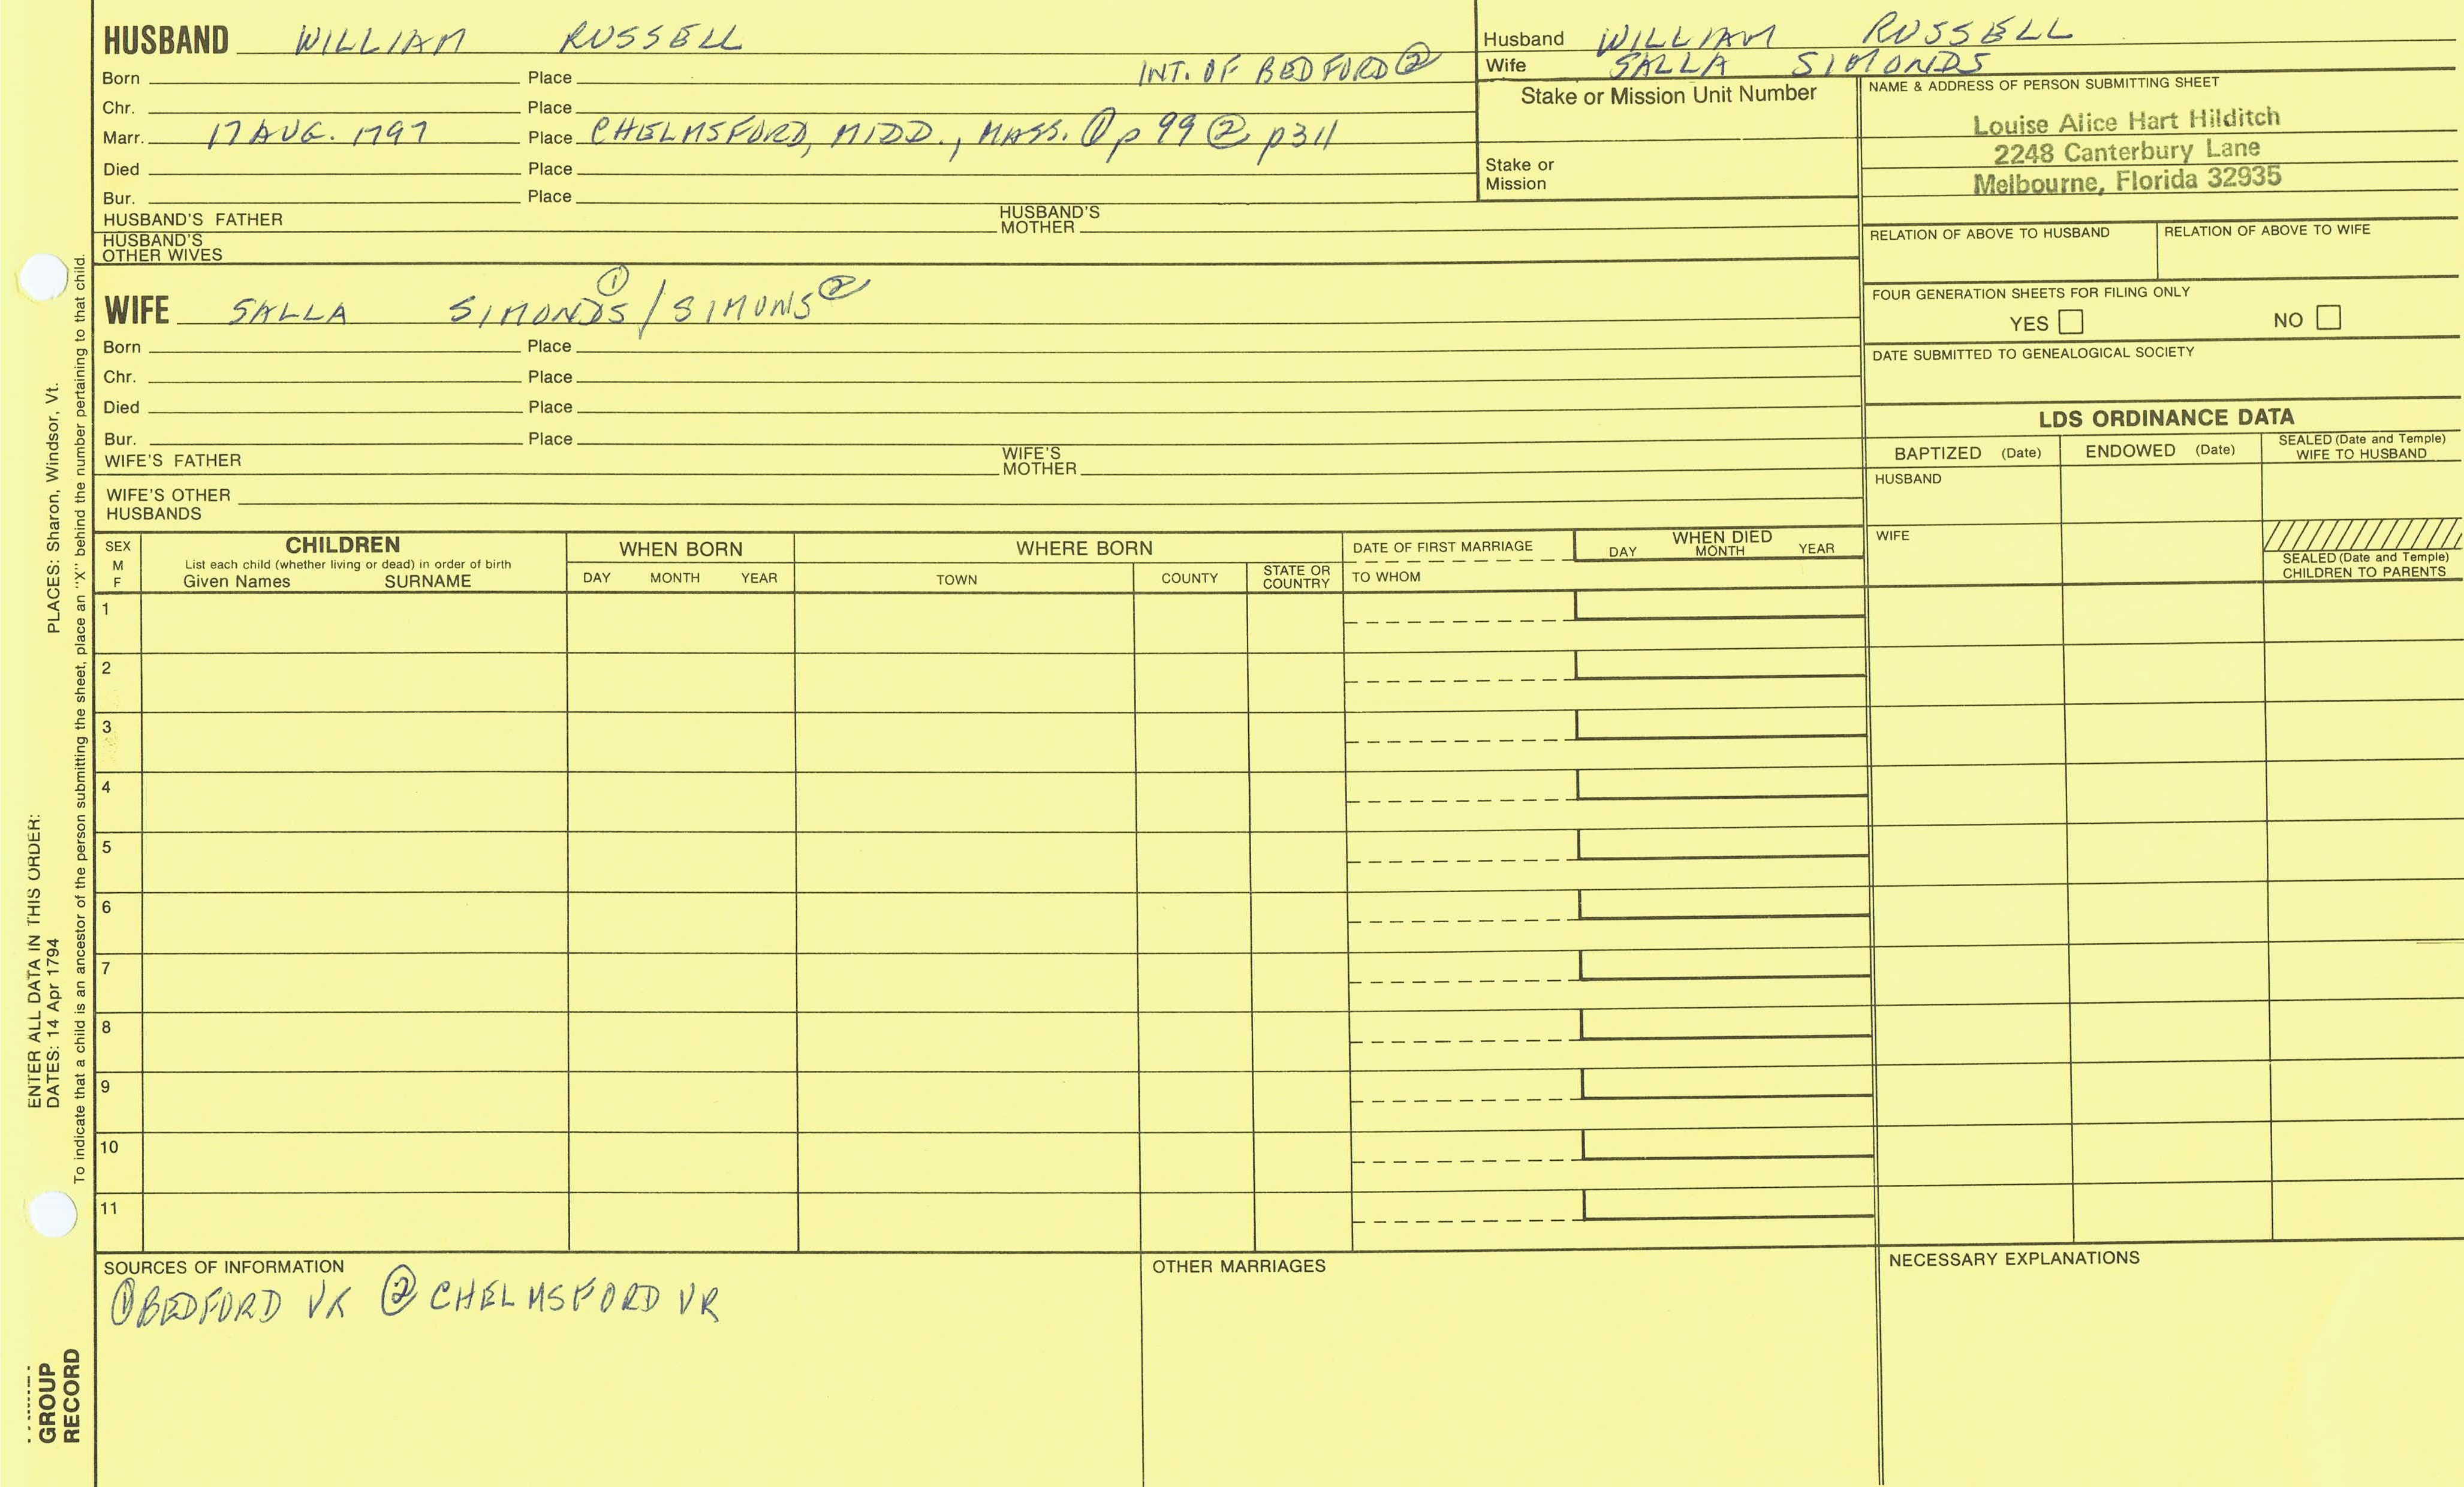 HUSBAND WILLIAM RUSSELL
Born Place INT. OF BEDFORD ②
Chr. Place
Marr. 17 AUG. 1797 Place CHELMSFORD, MIDD., MASS. ① p 99 ② p311
Died Place
Bur. Place
HUSBAND'S FATHER HUSBAND'S MOTHER
HUSBAND'S OTHER WIVES
Husband WILLIAM RUSSELL
Wife SALLA SIMONDS
Stake or Mission Unit Number
Stake or Mission
NAME & ADDRESS OF PERSON SUBMITTING SHEET
Louise Alice Hart Hilditch
2248 Canterbury Lane
Melbourne, Florida 32935
RELATION OF ABOVE TO HUSBAND RELATION OF ABOVE TO WIFE
FOUR GENERATION SHEETS FOR FILING ONLY
YES NO
DATE SUBMITTED TO GENEALOGICAL SOCIETY
WIFE SALLA SIMONDS ① / SIMONS ②
Born Place
Chr. Place
Died Place
Bur. Place
WIFE'S FATHER WIFE'S MOTHER
WIFE'S OTHER HUSBANDS
LDS ORDINANCE DATA
BAPTIZED (Date) ENDOWED (Date) SEALED (Date and Temple) WIFE TO HUSBAND
HUSBAND
WIFE
SEALED (Date and Temple) CHILDREN TO PARENTS
SEX M F
CHILDREN
List each child (whether living or dead) in order of birth
Given Names SURNAME
WHEN BORN
DAY MONTH YEAR
WHERE BORN
TOWN COUNTY STATE OR COUNTRY
DATE OF FIRST MARRIAGE
TO WHOM
WHEN DIED
DAY MONTH YEAR
1
2
3
4
5
6
7
8
9
10
11
SOURCES OF INFORMATION
① BEDFORD VR ② CHELMSFORD VR
OTHER MARRIAGES
NECESSARY EXPLANATIONS
ENTER ALL DATA IN THIS ORDER:
DATES: 14 Apr 1794 PLACES: Sharon, Windsor, Vt.
To indicate that a child is an ancestor of the person submitting the sheet, place an "X" behind the number pertaining to that child.
GROUP
RECORD